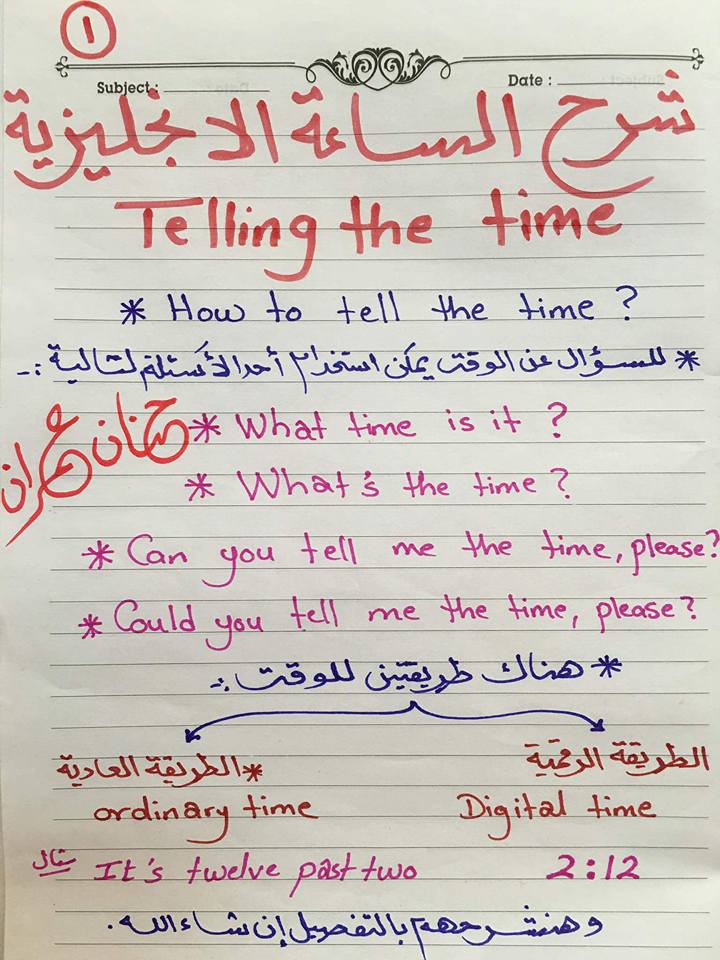 ١
Subject :
Date :
شرح الساعة الانجليزية
Telling the time
* How to tell the time ?
* للسؤال عن الوقت يمكن استخدام أحد الأسئلة التالية :-
* What time is it ?
حنان عمران
* What's the time ?
* Can you tell me the time, please?
* Could you tell me the time, please?
* هناك طريقتين للوقت :-
الطريقة الرقمية
*الطريقة العادية
Digital time
ordinary time
مثال It's twelve past two
2:12
وهنشرحهم بالتفصيل إن شاء الله .